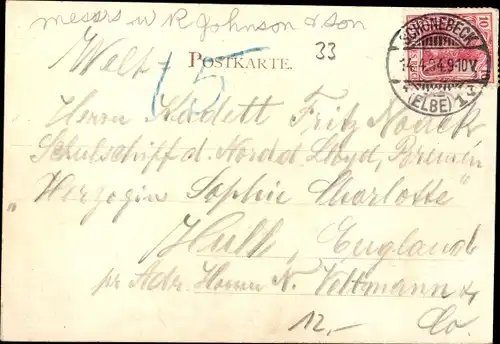 messrs W R Johnson & son
33
SCHÖNEBECK
14.4.04.9-10V.
(ELBE) 1
10
Welt-
POSTKARTE.
15
Herrn Kadett Fritz
Schulschiff d. Nordd. Lloyd, Bremen
"Herzogin Sophie Charlotte"
Hull, England
pr Adr. Herrn N. Veltmann &
Co.
12,-